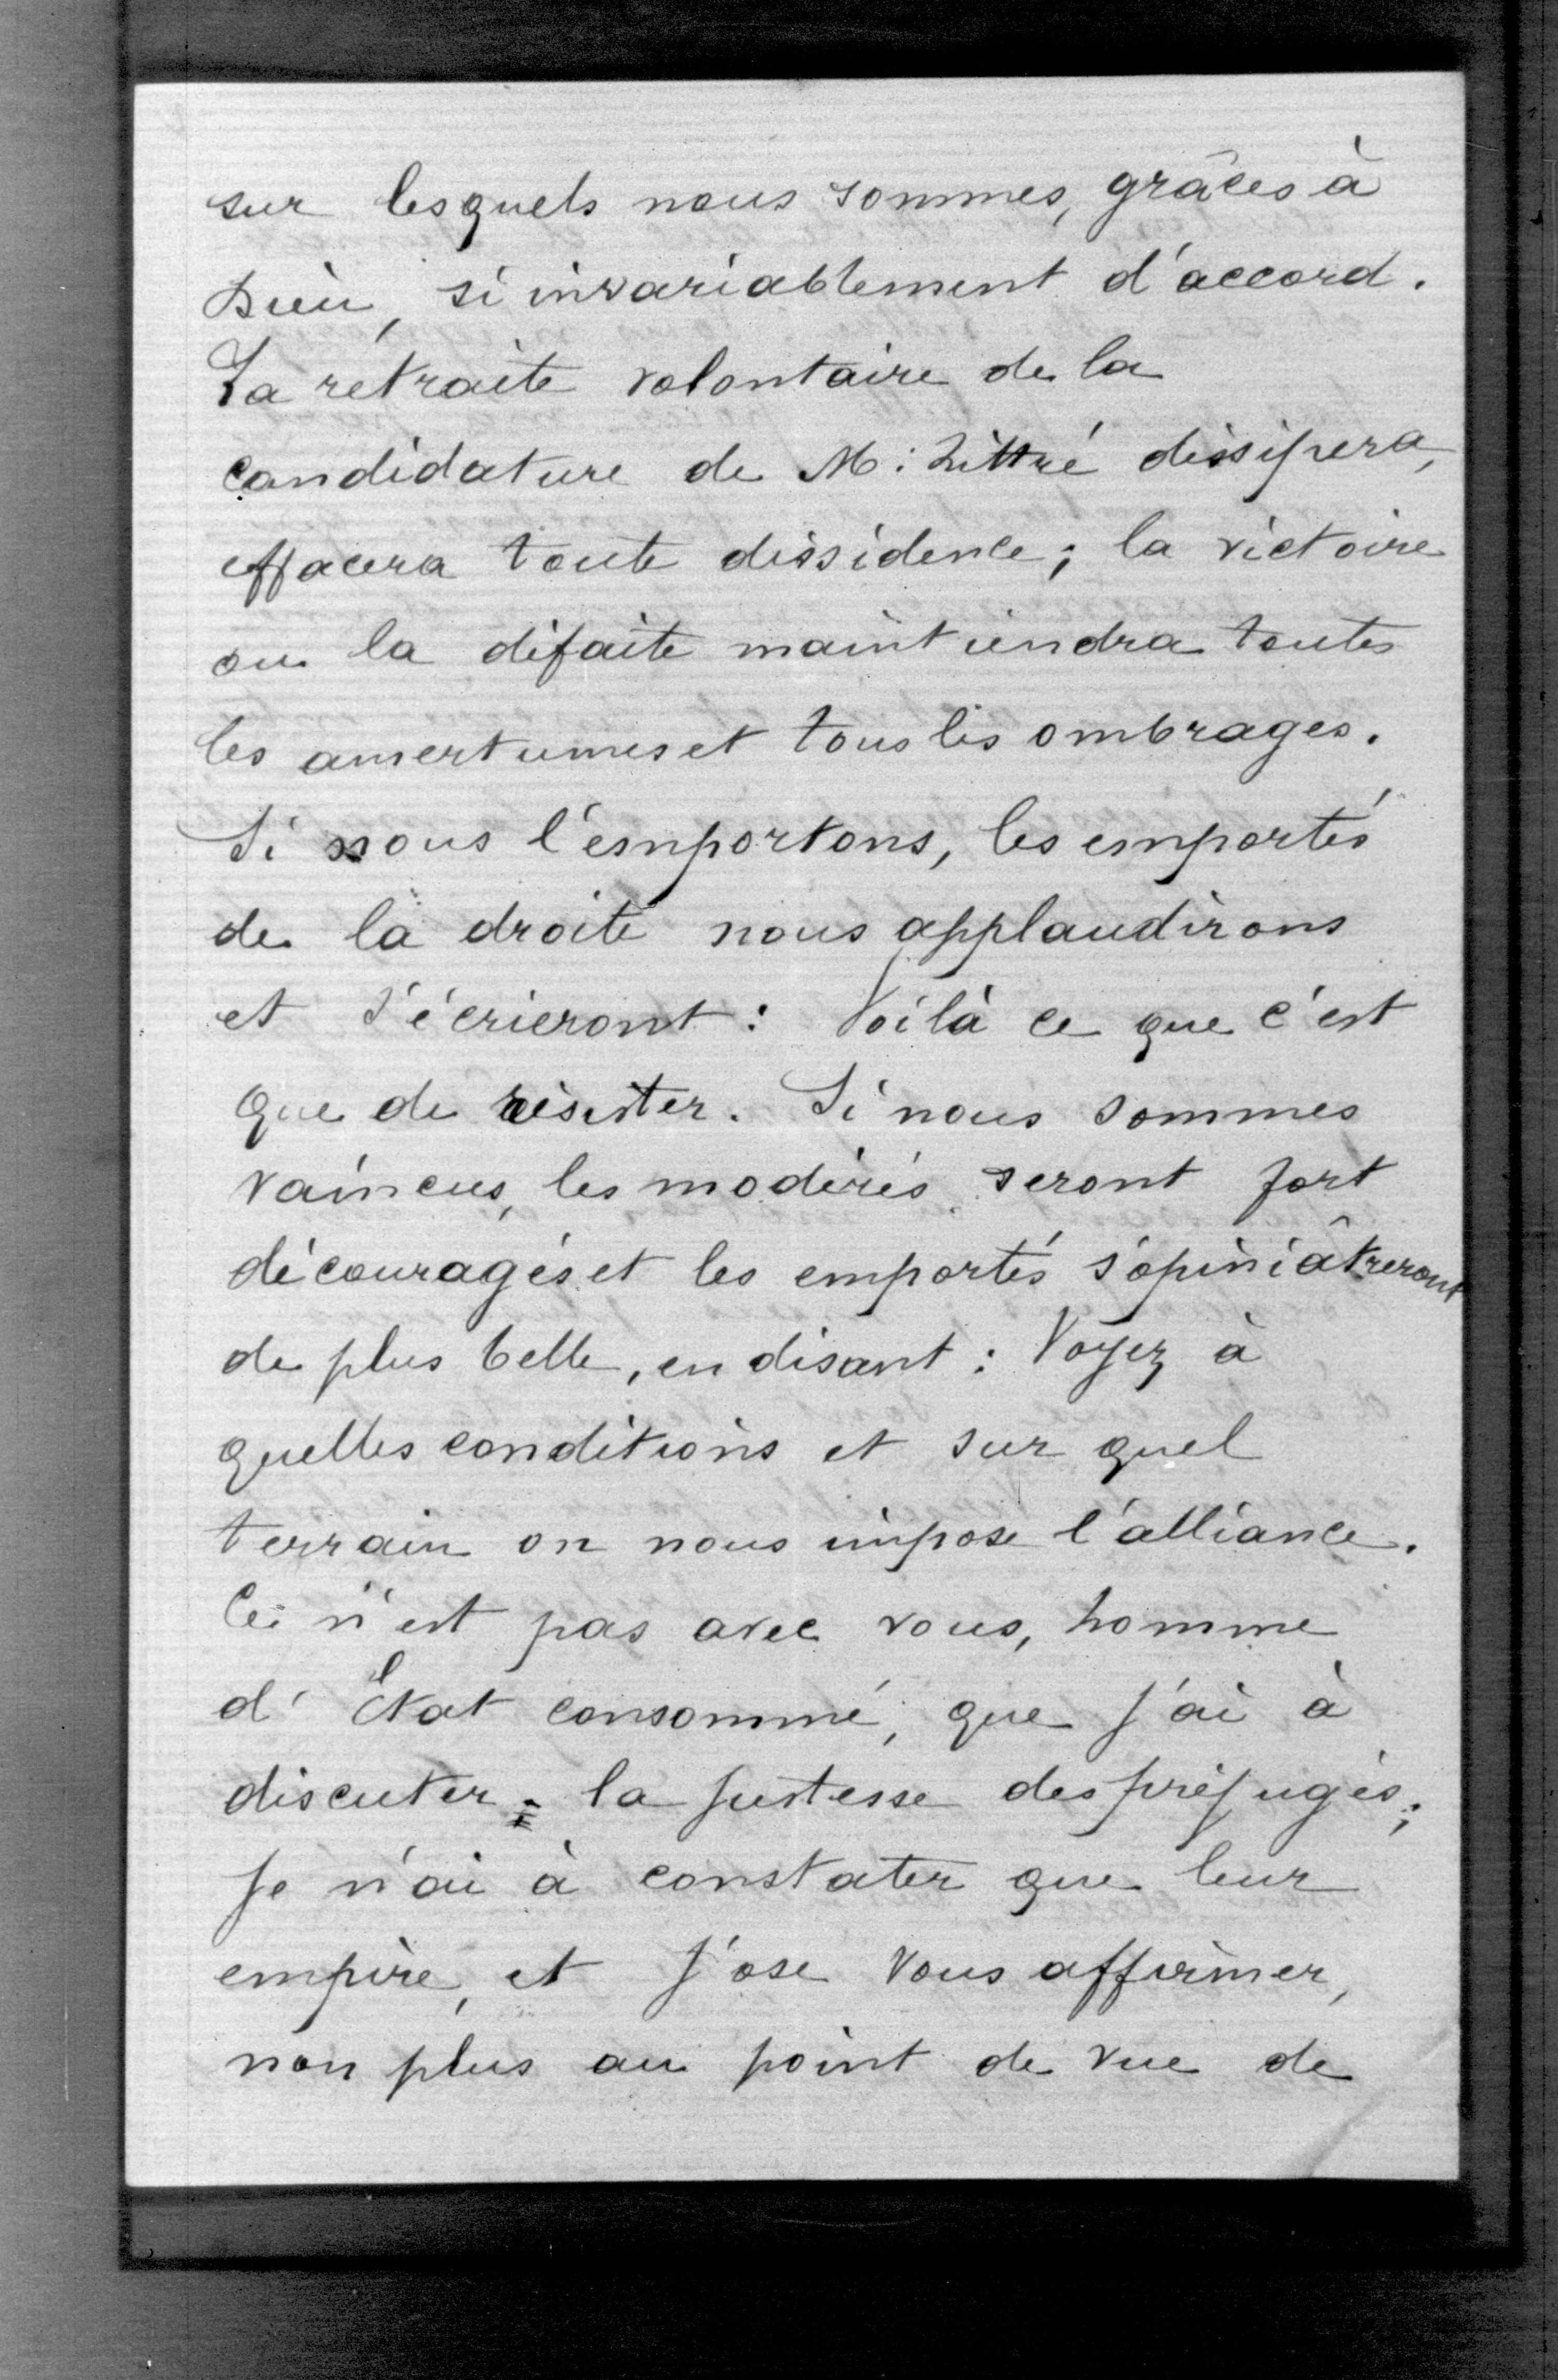 sur lesquels nous sommes, grâces à
Dieu, si invariablement d'accord.
La retraite volontaire de la
candidature de M: Littré dissipera,
effacera toute dissidence; la victoire
ou la défaite maintiendra toutes
les amertumes et tous les ombrages.
Si nous l'emportons, les emportés
de la droite nous applaudirons
et s'écrieront: Voilà ce que c'est
que de résister. Si nous sommes
vaincus, les modérés seront fort
découragés et les emportés s'opiniâtreront
de plus belle, en disant: Voyez à
quelles conditions et sur quel
terrain on nous impose l'alliance.
Ce n'est pas avec vous, homme
d'État consommé, que j'ai à
discuter la justesse des préjugés;
je n'ai à constater que leur
empire, et j'ose vous affirmer,
non plus au point de vue de